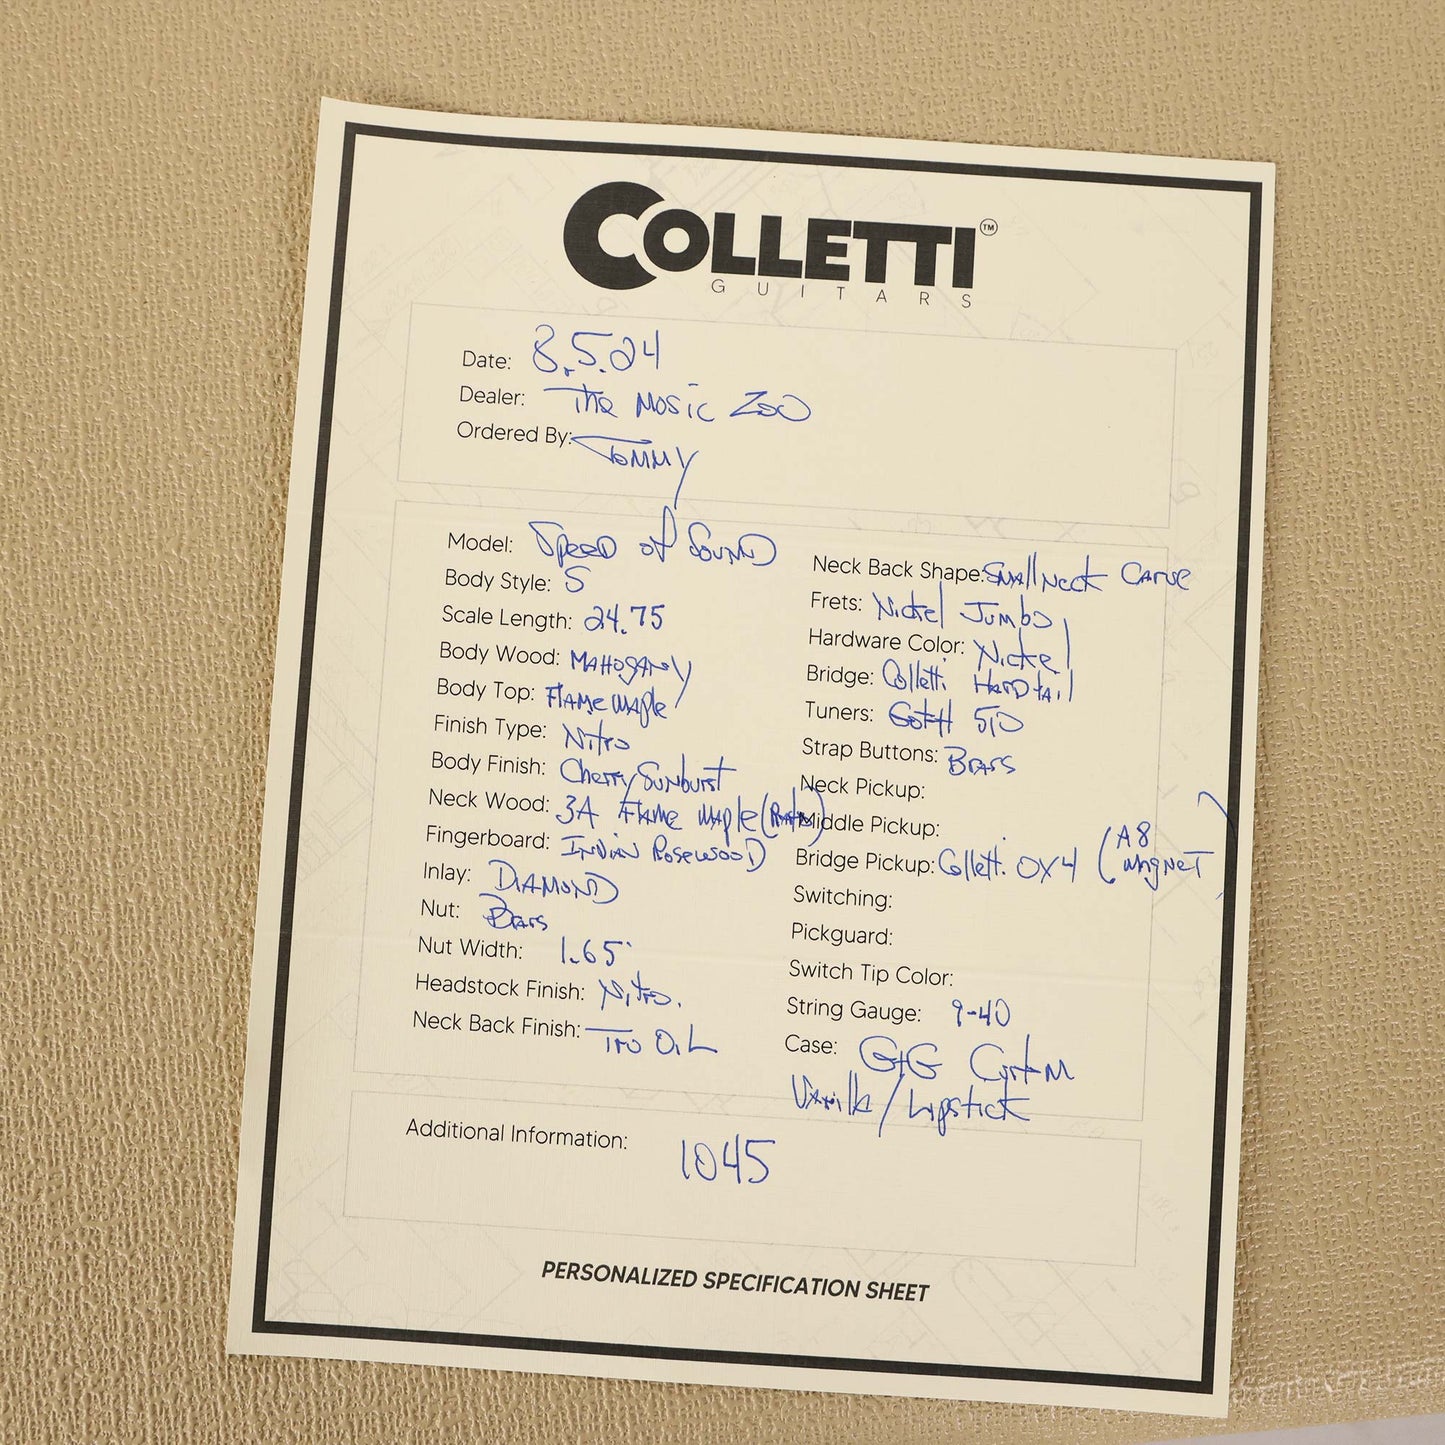 COLLETTI TM
GUITARS
Date: 8.5.24
Dealer: The Mosic Zoo
Ordered By: Tommy
Model: Speed of Sound
Body Style: S
Scale Length: 24.75
Body Wood: Mahogany
Body Top: Flame Maple
Finish Type: Nitro
Body Finish: Cherry Sunburst
Neck Wood: 3A Flame Maple
Fingerboard: Indian Rosewood
Inlay: Diamond
Nut: Brass
Nut Width: 1.65
Headstock Finish: Nitro.
Neck Back Finish: Tru Oil
Neck Back Shape: Small Neck Carve
Frets: Nickel Jumbo
Hardware Color: Nickel
Bridge: Colletti Hardtail
Tuners: Gotoh 510
Strap Buttons: Brass
Neck Pickup:
Middle Pickup:
Bridge Pickup: Colletti OX4 (A8 Magnet)
Switching:
Pickguard:
Switch Tip Color:
String Gauge: 9-40
Case: G&G Custom
Vanilla / Lipstick
Additional Information: 1045
PERSONALIZED SPECIFICATION SHEET